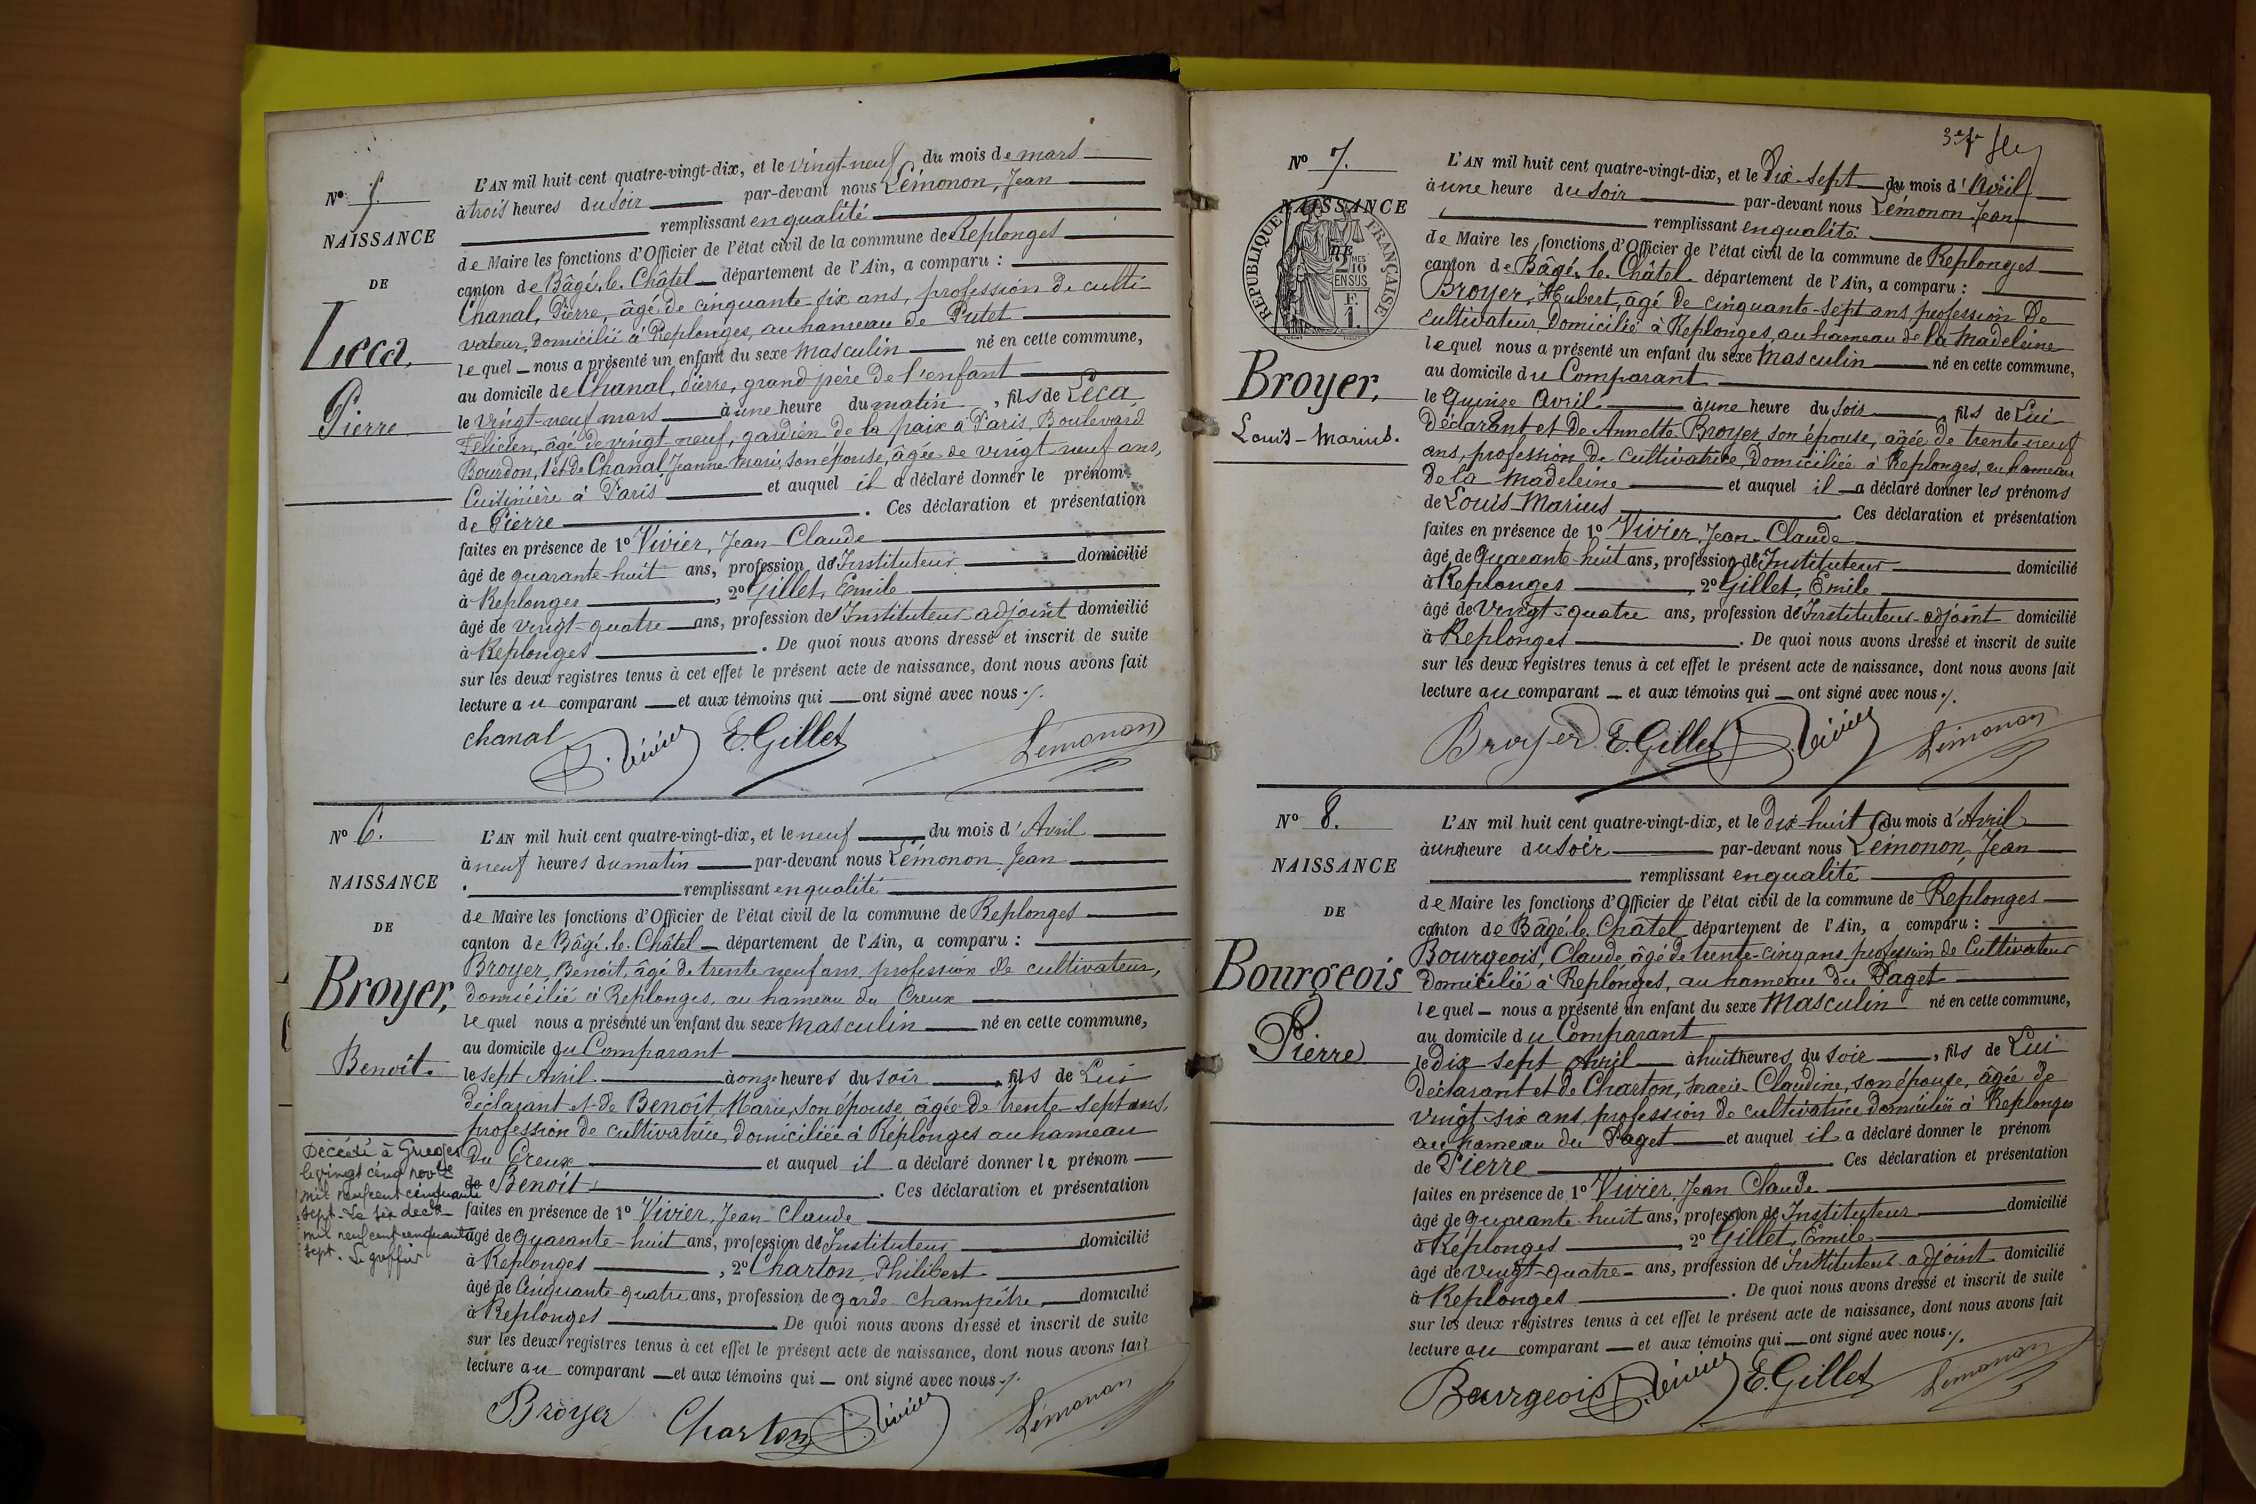 N° 5.
NAISSANCE
DE
Leca,
Pierre
L'AN mil huit cent quatre-vingt-dix, et le vingt-neuf du mois de mars
à trois heures du soir par-devant nous Lémonon, Jean
remplissant en qualité
de Maire les fonctions d'Officier de l'état civil de la commune de Replonges
canton de Bâgé-le-Châtel département de l'Ain, a comparu :
Chanal, Pierre, âgé de cinquante six ans, profession de culti-
vateur, domicilié à Replonges, au hameau de Putet
lequel nous a présenté un enfant du sexe masculin né en cette commune,
au domicile de Chanal, Pierre, grand père de l'enfant
le vingt-neuf mars à une heure du matin, fils de Leca
Félicien, âgé de vingt neuf, gardien de la paix à Paris, Boulevard
Bourdon, 1 et de Chanal Jeanne Marie, son épouse, âgée de vingt neuf ans,
Cuisinière à Paris et auquel il a déclaré donner le prénom
de Pierre. Ces déclaration et présentation
faites en présence de 1° Vivier, Jean-Claude
âgé de quarante-huit ans, profession d'Instituteur domicilié
à Replonges, 2° Gillet, Emile
âgé de vingt-quatre ans, profession d'Instituteur-adjoint domicilié
à Replonges. De quoi nous avons dressé et inscrit de suite
sur les deux registres tenus à cet effet le présent acte de naissance, dont nous avons fait
lecture au comparant et aux témoins qui ont signé avec nous ./.
chanal Vivier E. Gillet Lémonon
N° 6.
NAISSANCE
DE
Broyer,
Benoit.
Décédé à Grièges
le vingt cinq novbre
mil neuf cent cinquante
sept. Le six decbre
mil neuf cent cinquante
sept. Le greffier
L'AN mil huit cent quatre-vingt-dix, et le neuf du mois d'Avril
à neuf heures du matin par-devant nous Lémonon Jean
remplissant en qualité
de Maire les fonctions d'Officier de l'état civil de la commune de Replonges
canton de Bâgé-le-Châtel département de l'Ain, a comparu :
Broyer, Benoit, âgé de trente neuf ans, profession de cultivateur,
domicilié à Replonges, au hameau du Creux
lequel nous a présenté un enfant du sexe masculin né en cette commune,
au domicile du Comparant
le sept Avril à onze heures du soir, fils de Lui
déclarant et de Benoît Marie, son épouse, âgée de trente-sept ans,
profession de cultivatrice, domiciliée à Replonges au hameau
du Creux et auquel il a déclaré donner le prénom
de Benoit. Ces déclaration et présentation
faites en présence de 1° Vivier, Jean-Claude
âgé de quarante-huit ans, profession d'Instituteur domicilié
à Replonges, 2° Charton, Philibert
âgé de Cinquante-quatre ans, profession de garde-champêtre domicilié
à Replonges. De quoi nous avons dressé et inscrit de suite
sur les deux registres tenus à cet effet le présent acte de naissance, dont nous avons fait
lecture au comparant et aux témoins qui ont signé avec nous ./.
Broyer Charton Vivier Lémonon
3e fr
N° 7.
NAISSANCE
DE
REPUBLIQUE FRANÇAISE
2/10
EN SUS
F.
1.
Broyer,
Louis-Marius.
L'AN mil huit cent quatre-vingt-dix, et le Dix-sept du mois d'Avril
à une heure du soir par-devant nous Lémonon Jean
remplissant en qualité
de Maire les fonctions d'Officier de l'état civil de la commune de Replonges
canton de Bâgé-le-Châtel département de l'Ain, a comparu :
Broyer, Hubert, âgé de cinquante-sept ans profession de
cultivateur, domicilié à Replonges, au hameau de la Madeleine
lequel nous a présenté un enfant du sexe masculin né en cette commune,
au domicile du Comparant
le Quinze Avril à une heure du soir, fils de Lui
Déclarant et de Annette Broyer, son épouse, âgée de trente-neuf
ans, profession de cultivatrice, domiciliée à Replonges, au hameau
de la Madeleine et auquel il a déclaré donner les prénoms
de Louis Marius. Ces déclaration et présentation
faites en présence de 1° Vivier, Jean-Claude
âgé de quarante-huit ans, profession d'Instituteur domicilié
à Replonges, 2° Gillet, Emile
âgé de vingt-quatre ans, profession d'Instituteur-adjoint domicilié
à Replonges. De quoi nous avons dressé et inscrit de suite
sur les deux registres tenus à cet effet le présent acte de naissance, dont nous avons fait
lecture au comparant et aux témoins qui ont signé avec nous ./.
Broyer E. Gillet Vivier Lémonon
N° 8.
NAISSANCE
DE
Bourgeois
Pierre
L'AN mil huit cent quatre-vingt-dix, et le dix-huit du mois d'Avril
à une heure du soir par-devant nous Lémonon, Jean
remplissant en qualité
de Maire les fonctions d'Officier de l'état civil de la commune de Replonges
canton de Bâgé-le-Châtel département de l'Ain, a comparu :
Bourgeois, Claude, âgé de trente-cinq ans, profession de Cultivateur
domicilié à Replonges, au hameau du Paget
lequel nous a présenté un enfant du sexe Masculin né en cette commune,
au domicile du Comparant
le dix sept Avril à huit heures du soir, fils de Lui
déclarant et de Charton, Marie-Claudine, son épouse, âgée de
vingt-six ans, profession de cultivatrice, domiciliée à Replonges
au hameau du Paget et auquel il a déclaré donner le prénom
de Pierre Ces déclaration et présentation
faites en présence de 1° Vivier, Jean Claude
âgé de quarante-huit ans, profession d'Instituteur domicilié
à Replonges, 2° Gillet, Emile
âgé de vingt-quatre ans, profession d'Instituteur adjoint domicilié
à Replonges. De quoi nous avons dressé et inscrit de suite
sur les deux registres tenus à cet effet le présent acte de naissance, dont nous avons fait
lecture au comparant et aux témoins qui ont signé avec nous ./.
Bourgeois Vivier E. Gillet Lémonon